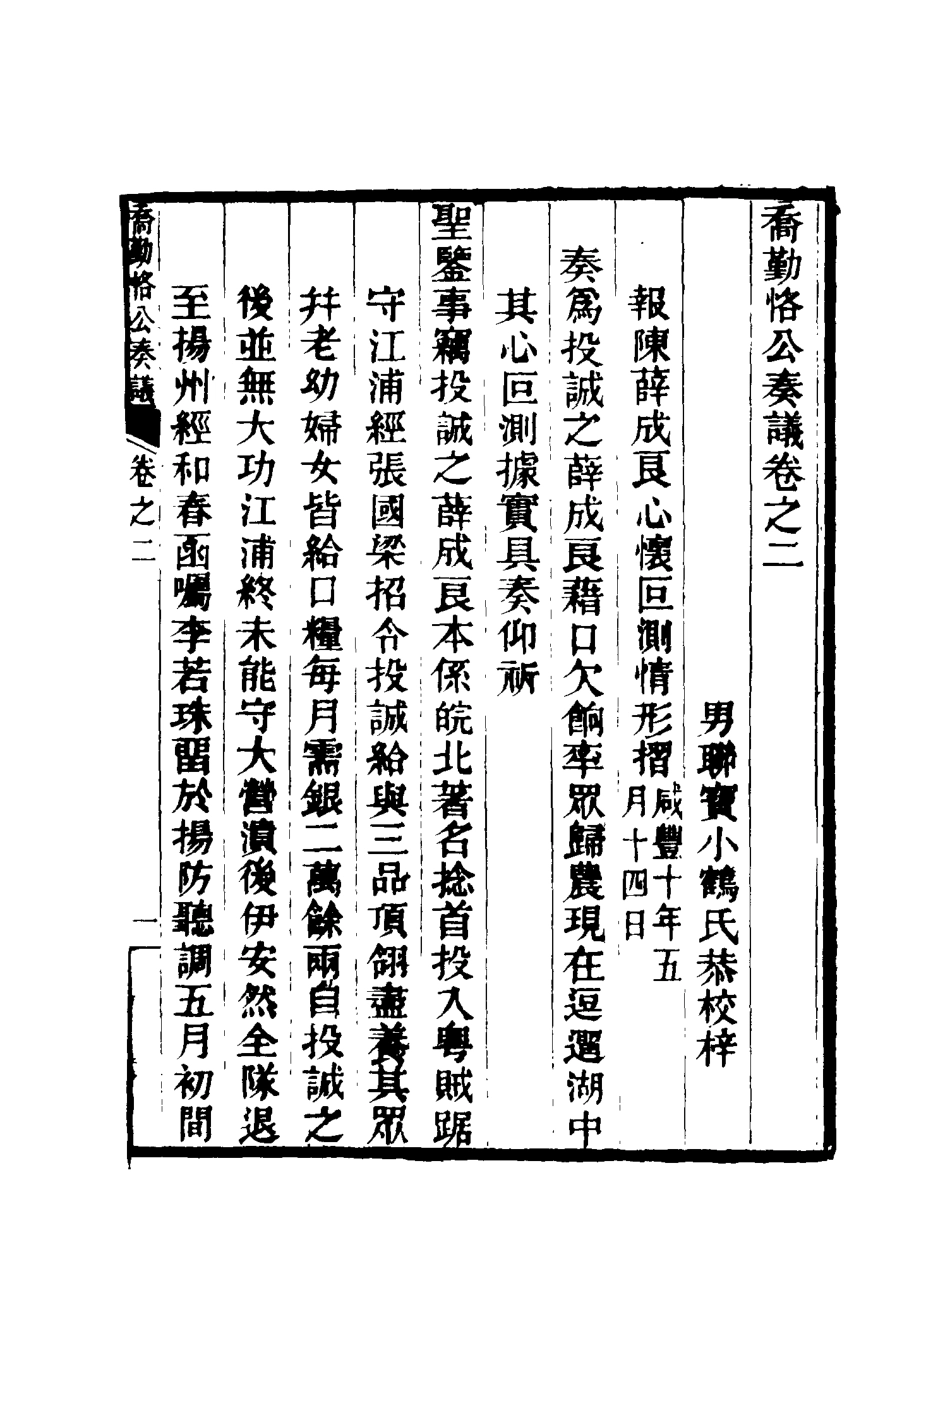 喬勤恪公奏議卷之二
男聯寶小鶴氏恭校梓
報陳薛成良心懷叵測情形摺咸豐十年五月十四日
奏爲投誠之薛成良藉口欠餉率眾歸農現在逗遛湖中
其心叵測據實具奏仰祈
聖鑒事竊投誠之薛成良本係皖北著名捻首投入粤賊踞
守江浦經張國梁招令投誠給與三品頂翎盡養其眾
幷老幼婦女皆給口糧每月需銀二萬餘兩自投誠之
後並無大功江浦終未能守大營潰後伊安然全隊退
至揚州經和春函囑李若珠畱於揚防聽調五月初間
喬勤恪公奏議 卷之二 一